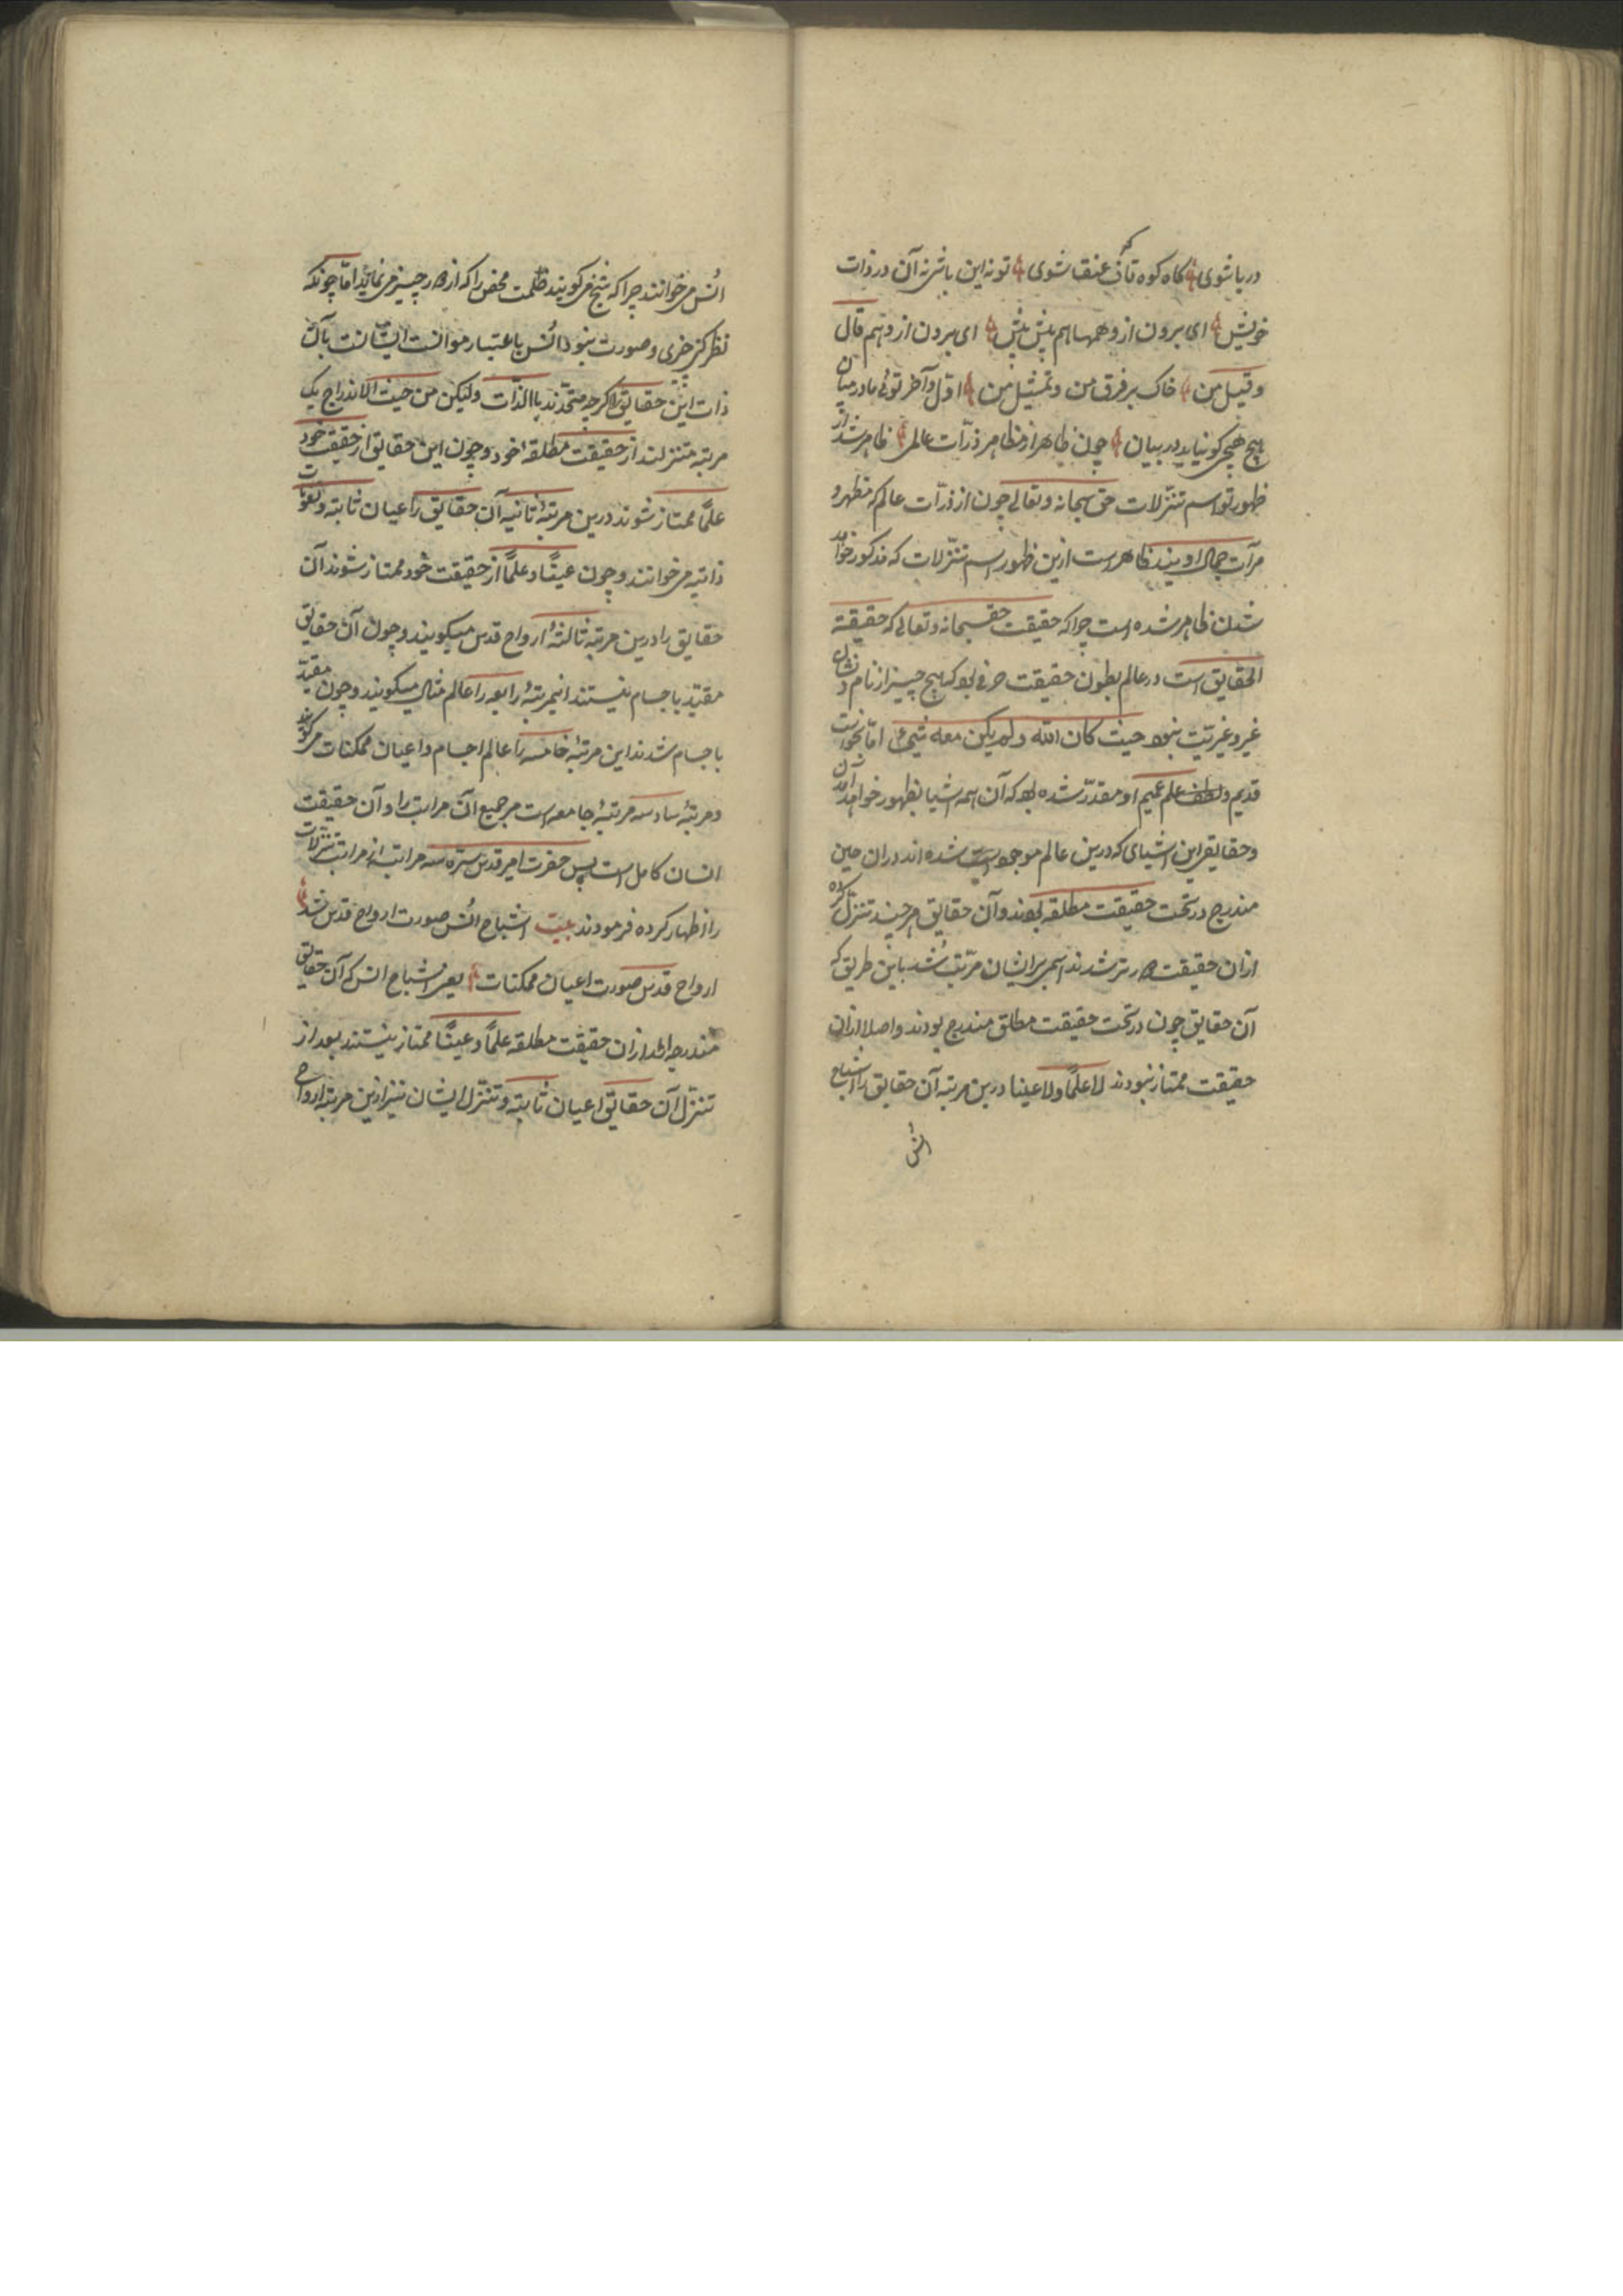 دریا شوی گاه کوه قاف که عنقا شوی تو نه این باشی نه آن در ذات
خویش ای برون از وهمها هم پیش پیش ای برون از وهم قال
و قیل من خاک بر فرق من و تمثیل من اول و آخر توئی ما در میان
هیچ هیچی کو نیاید در بیان چون ظاهر از مظاهر ذرّات عالمی ظاهر شد از
ظهور تو اسم تنزّلات حق سبحانه و تعالی چون از ذرّات عالم که مظهر و
مرآت جمال اویند ظاهر است ازین ظهور اسم تنزّلات که مذکور خواهد
شدن ظاهر شده است چرا که حقیقت حق سبحانه و تعالی که حقیقة
الحقایق است در عالم بطون حقیقت صرفی بود که هیچ چیز از نام و نشان
غیر و غیریّت نبود حیث کان الله و لم یکن معه شیء اما بخواست
قدیم و علم عمیم او مقدّر شده بود که آن همه اشیا بظهور خواهد آمدن
و حقایق این اشیای که درین عالم موجود شده اند در ان حین
مندرج در تحت حقیقت مطلقه بودند و آن حقایق هر چند تنزّل کرده
ازان حقیقت دورتر شدند اسمی بر ایشان مرتّب شد باین طریق که
آن حقایق چون در تحت حقیقت مطلق مندرج بودند و اصلا ازان
حقیقت ممتاز نبودند لا علمًا و لا عینا درین مرتبه آن حقایق را اشباح
انس
انس می خوانند چرا که شبح می گویند ظلمت محض را که از دور چیزی می نماید امّا چونکه
نظر کنی چیزی و صورت نبود و انس باعتبار موانست ایشانست بآن
ذات این حقایق اگر چه متّحدند بالذّات ولیکن من حیث الاندراج یک
مرتبه متنزلند از حقیقت مطلقهٔ خود و چون این حقایق از حقیقت خود
علمًا ممتاز شوند درین مرتبهٔ ثانیه آن حقایق را اعیان ثابته و نعوت
ذاتیه می خوانند و چون عینًا و علمًا از حقیقت خود ممتاز شوند آن
حقایق را درین مرتبهٔ ثالثهٔ ارواح قدس میگویند و چون آن حقایق
مقیّد باجسام نیستند اینمرتبهٔ رابعه را عالم مثال میگویند و چون مقیّد
باجسام شدند این مرتبهٔ خامسه را عالم اجسام و اعیان ممکنات می گویند
و مرتبهٔ سادسه مرتبهٔ جامعه است مر جمیع آن مراتب را و آن حقیقت
انسان کامل است پس حضرت امیر قدس سره سه مراتب از مراتب تنزّلات
را اظهار کرده فرمودند بیت اشباح انس صورت ارواح قدس شد
ارواح قدس صورت اعیان ممکنات یعنی اشباح انس که آن حقایق
مندرجه اند ازان حقیقت مطلقه علمًا و عینًا ممتاز نیستند بعد از
تنزّل آن حقایق اعیان ثابته و تنزّل ایشان نیز ازین مرتبه ارواح